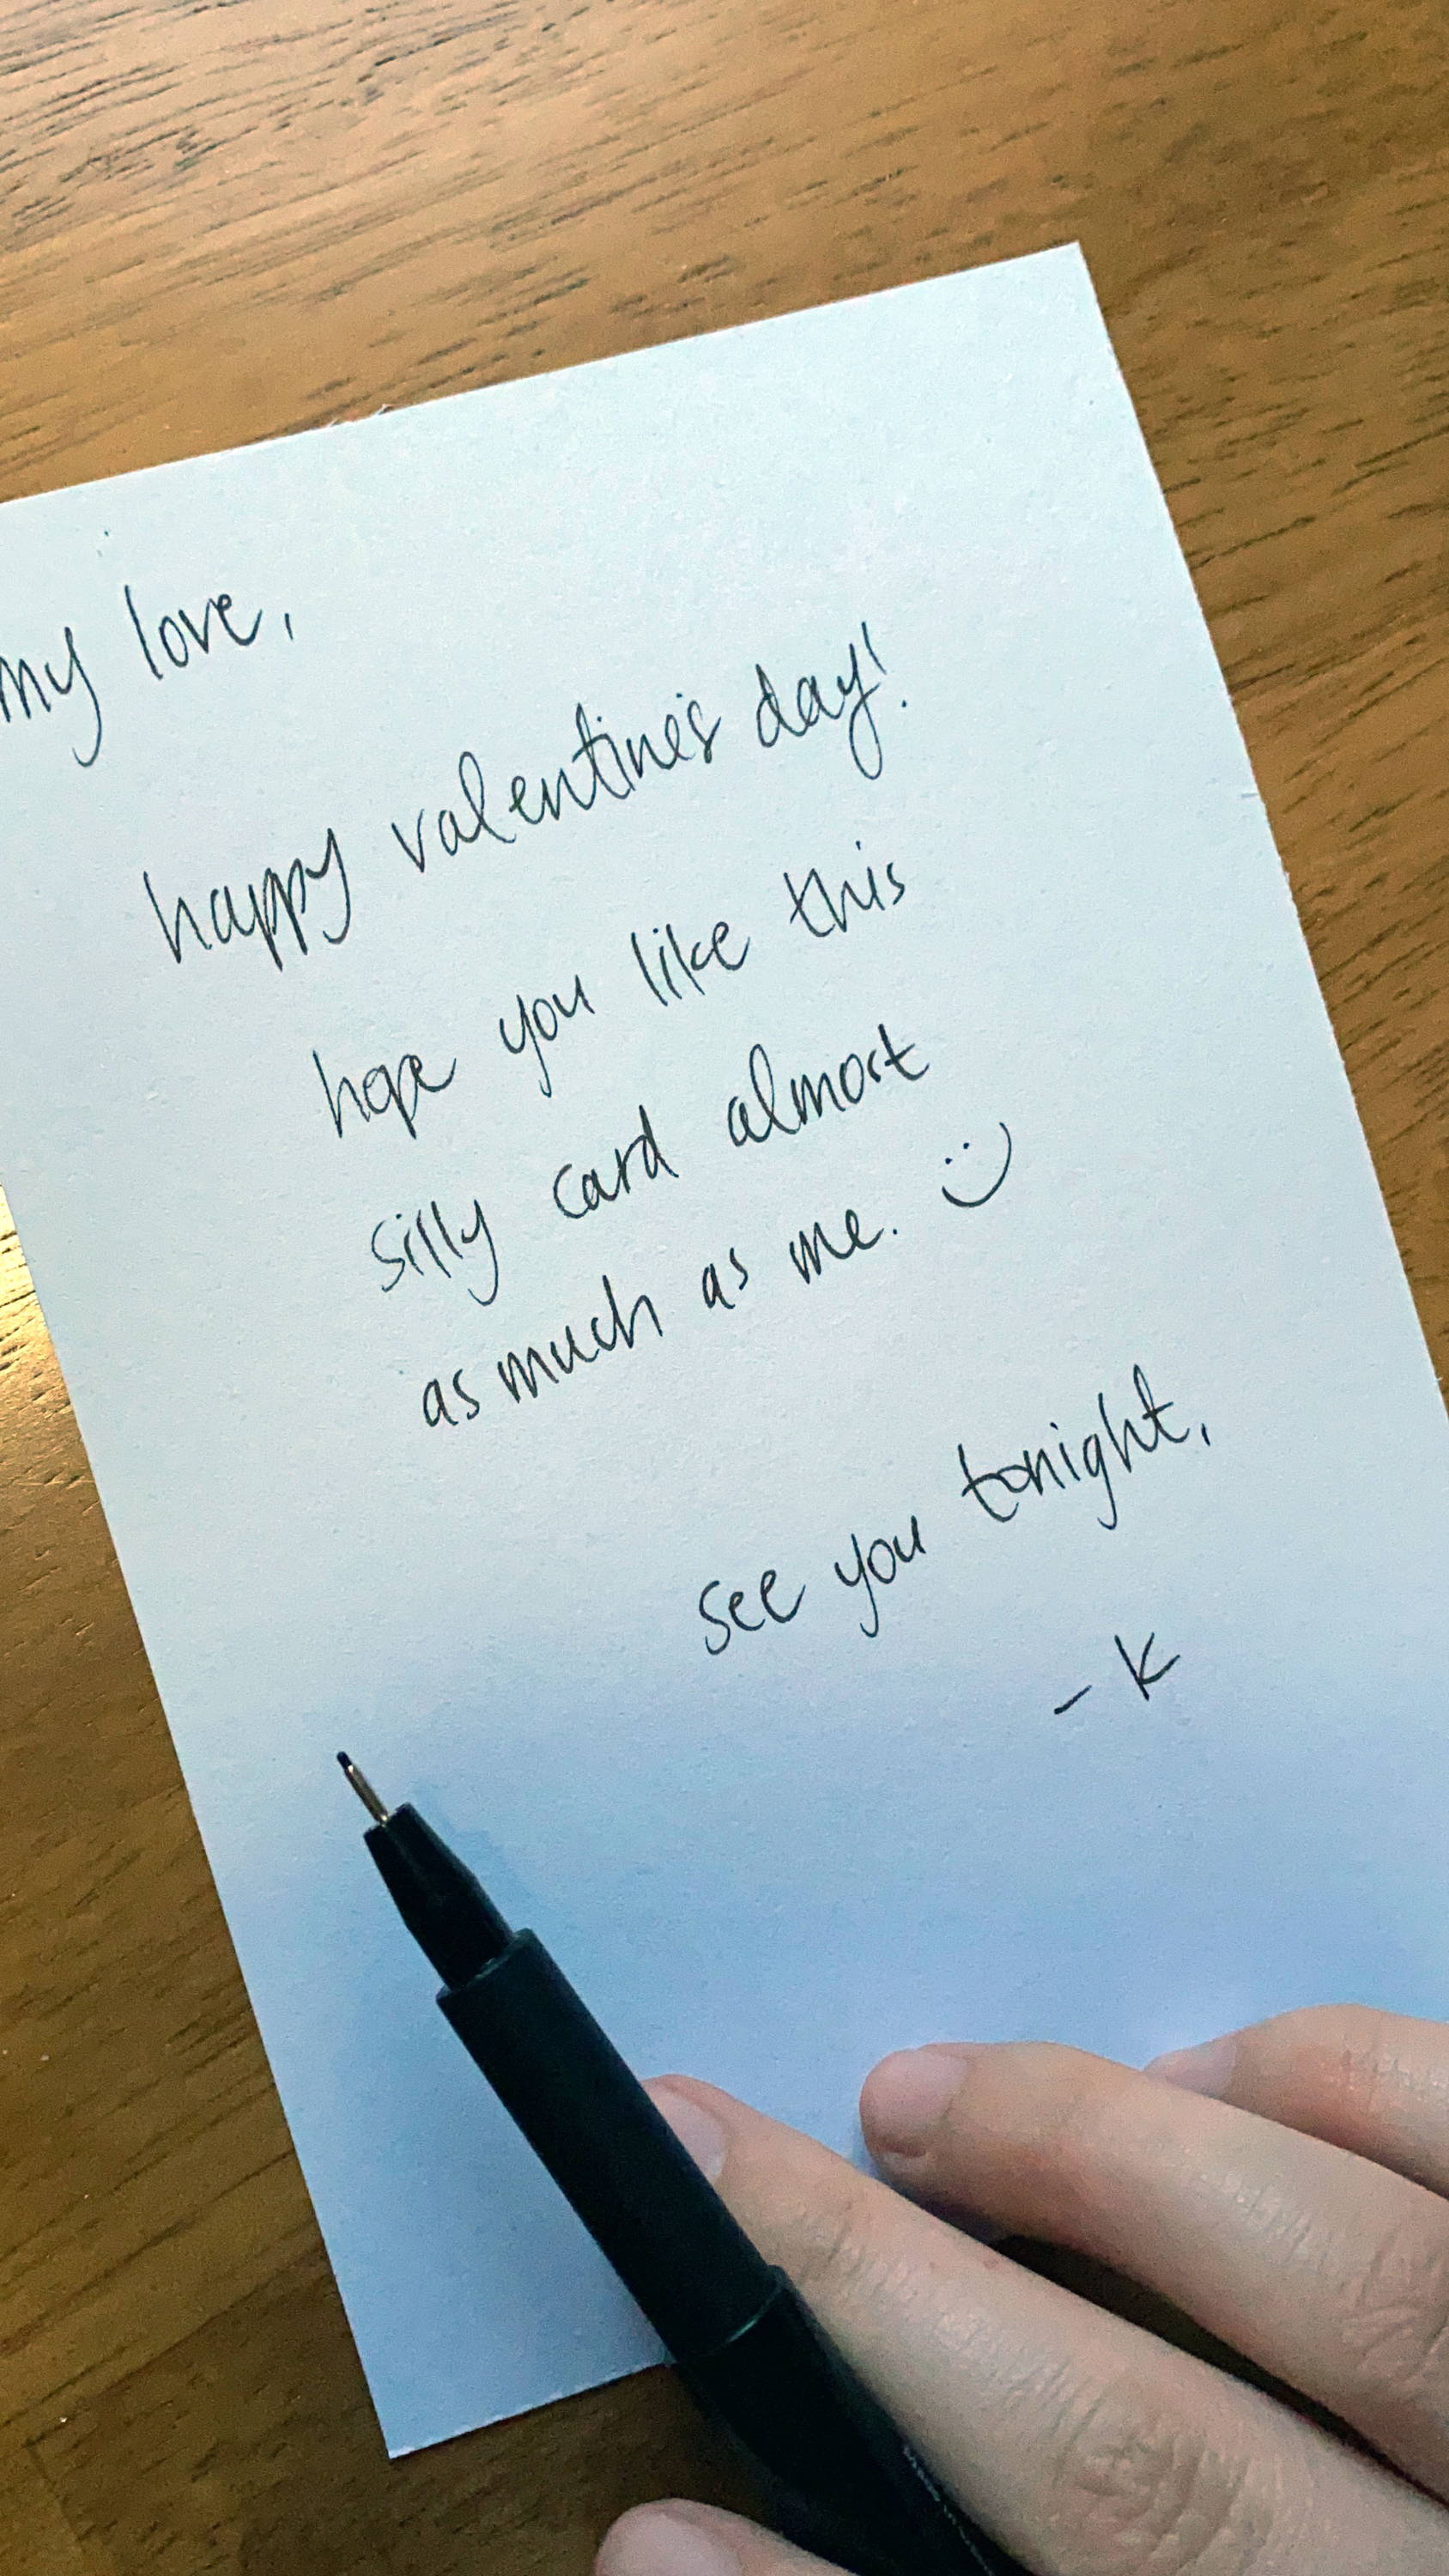 my love,
happy valentine's day!
hope you like this
silly card almost
as much as me. :)
see you tonight,
- K